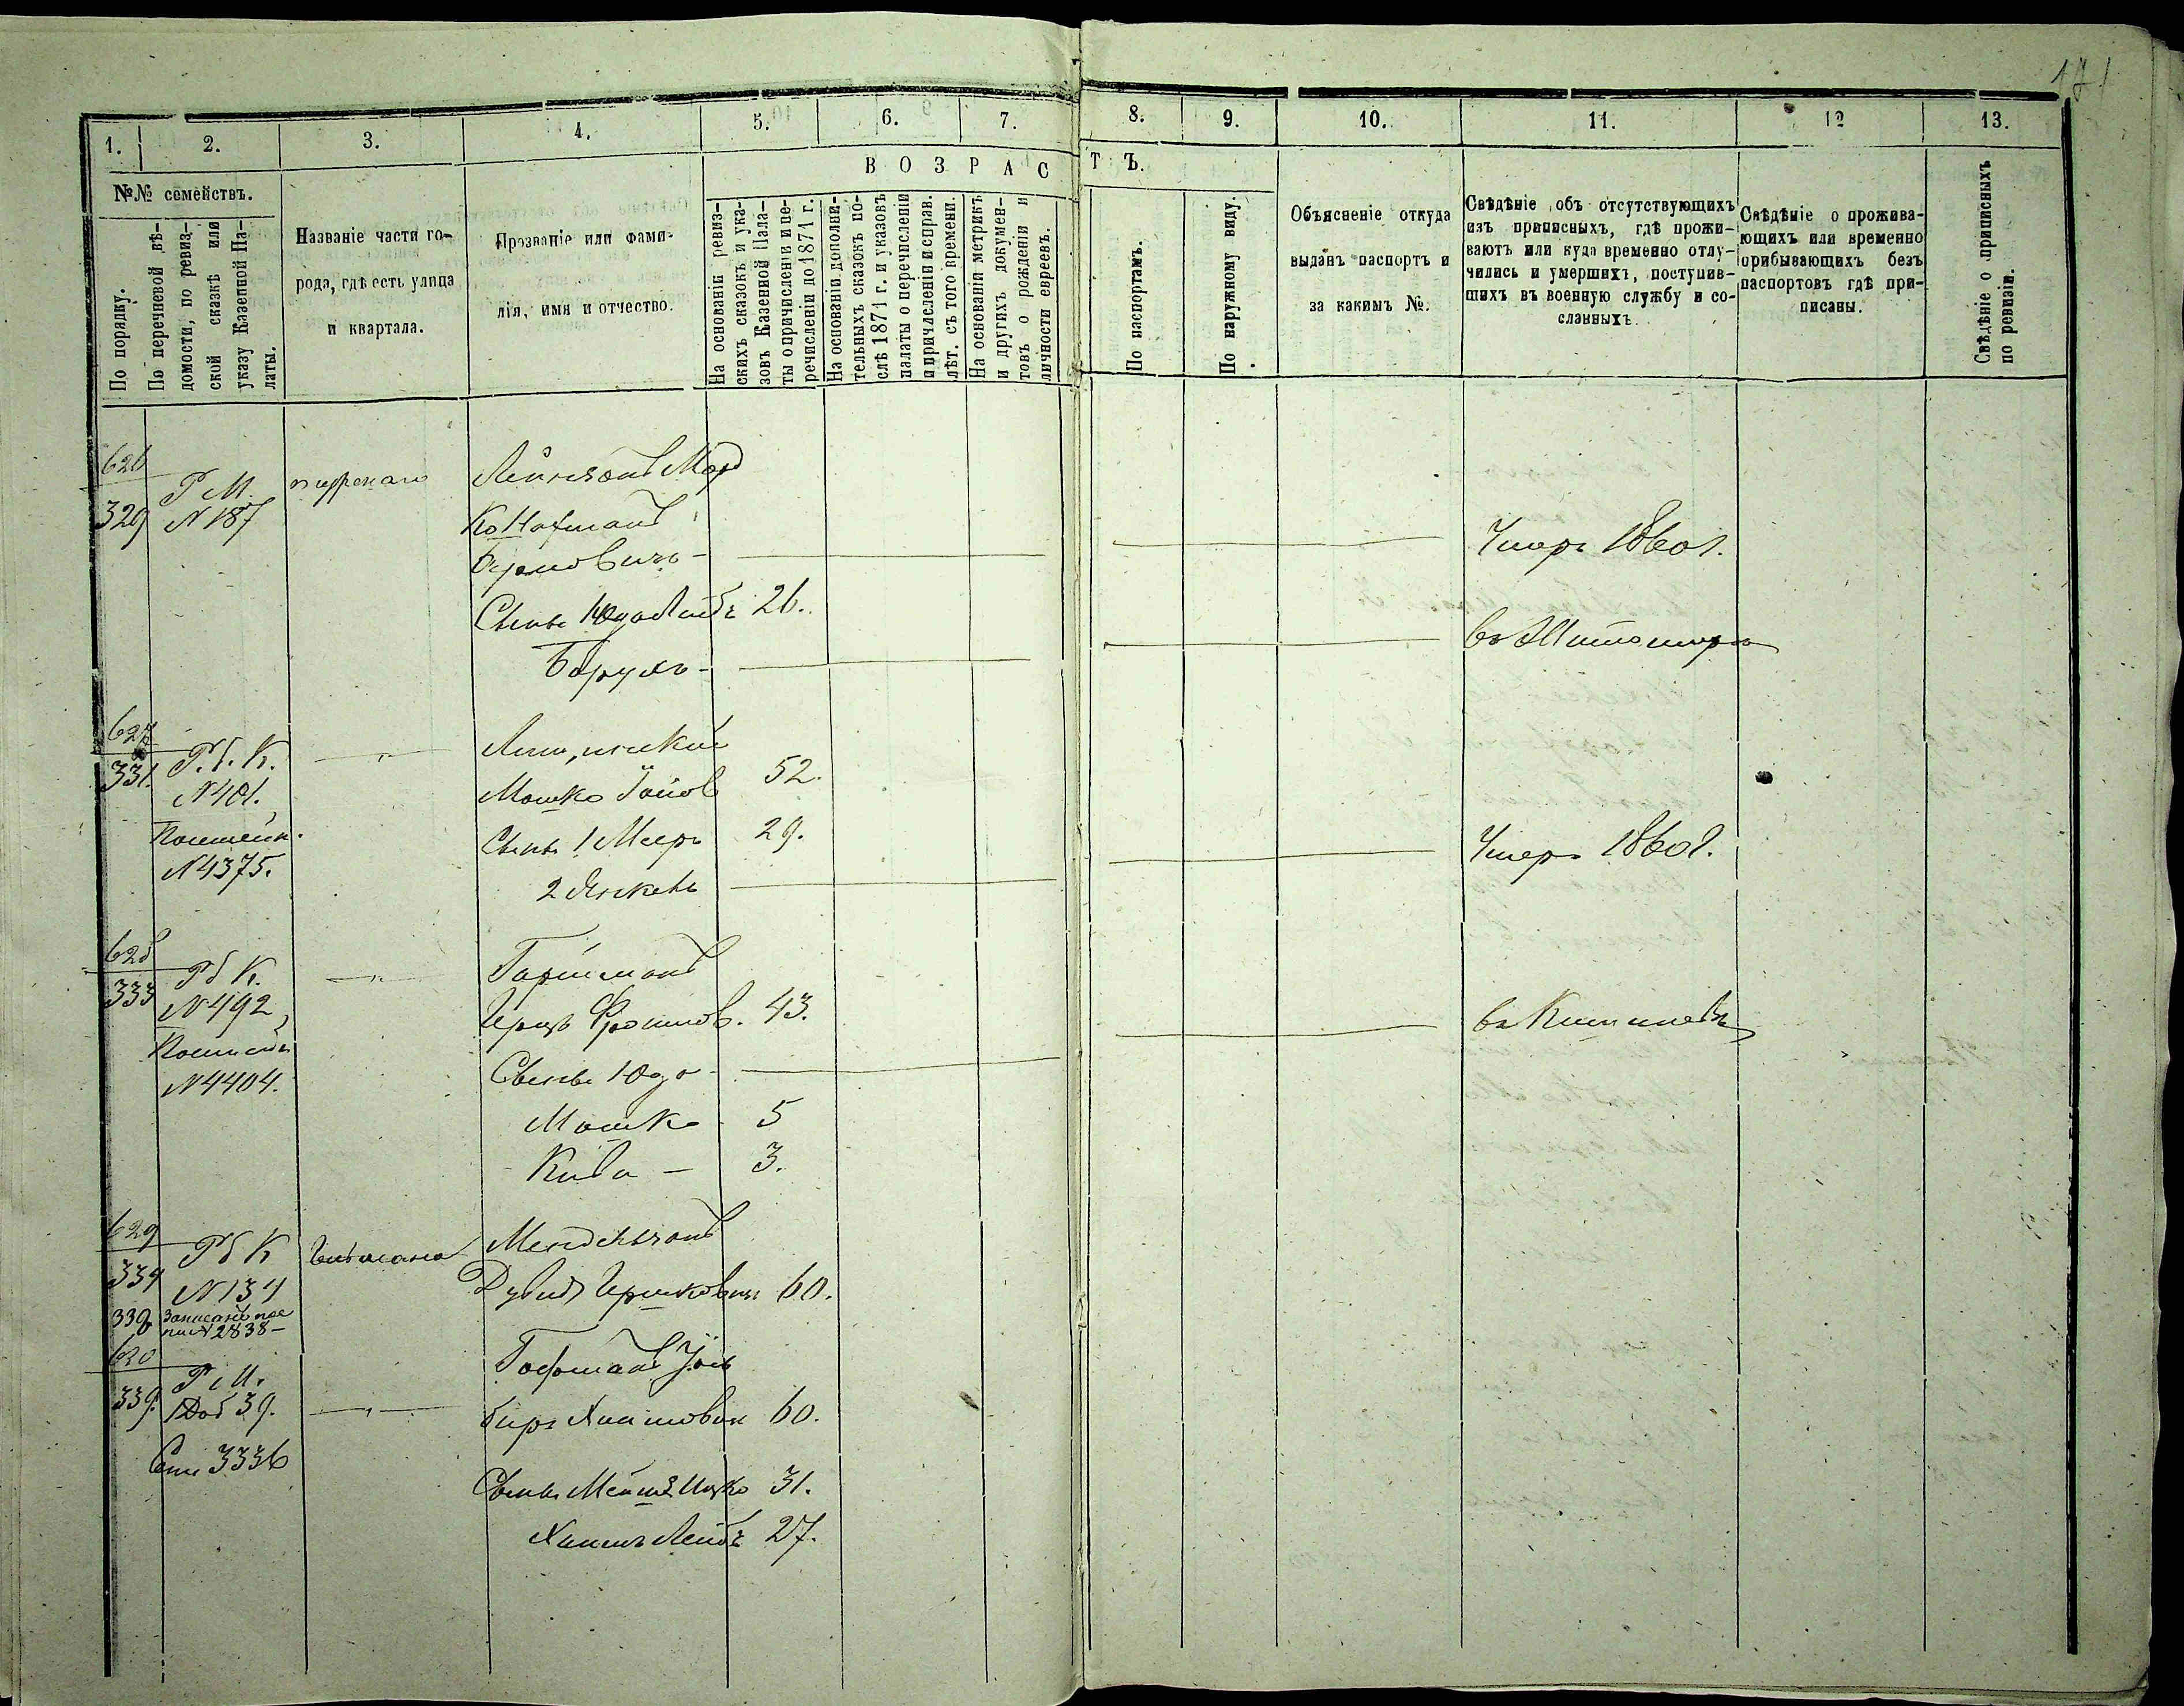 171
1. 2. 3. 4. 5. 6. 7. 8. 9. 10. 11. 12 13.
ВОЗРАСТЪ.
№№ семействъ.
По порядку.
По перечневой вѣ-
домости, по ревиз-
ской сказкѣ или
указу Казенной Па-
латы.
Названіе части го-
рода, гдѣ есть улица
и квартала.
Прозваніе или фами-
лія, имя и отчество.
На основаніи ревиз-
скихъ сказокъ и ука-
зовъ Казенной Пала-
ты о причисленіи и пе-
речисленіи до 1871 г.
На основаніи дополни-
тельныхъ сказокъ по-
слѣ 1871 г. и указовъ
палаты о перечисленіи
и причисленіи и справ.
лѣт. съ того времени.
На основаніи метрикъ
и другихъ докумен-
товъ о рожденіи и
личности евреевъ.
По паспортамъ.
По наружному виду.
Объясненіе откуда
выданъ паспортъ и
за какимъ №.
Свѣдѣніе объ отсутствующихъ
изъ приписныхъ, гдѣ прожи-
ваютъ или куда временно отлу-
чились и умершихъ, поступив-
шихъ въ военную службу и со-
сланныхъ.
Свѣдѣніе о прожива-
ющихъ или временно
прибывающихъ безъ
паспортовъ гдѣ при-
писаны.
Свѣдѣніе о приписныхъ
по ревизіи.
626
329 Р М.
N 187
Мор
Ко Нахманъ
Берковичъ - Умеръ 1860 г.
Сынъ Юда Лейбъ 26.
Борухъ - въ Житомирѣ
627
331. Р. б. К.
N 401.
Липицкій
Мошко 52.
N 4375.
Сынъ 1 Мееръ 29.
2 Янкель Умеръ 1860 г.
628
333 Р б К.
N 492
N 4404.
Гойтманъ
Герцъ Фроимов. 43.
Сынъ Юдо - въ Кишиневѣ
Мошко 5
Кива - 3.
629
334 Р б К
N 134
339 Записанъ
N 2838 -
Мендельзонъ
Дувидъ Гершкович 60.
620
339. Р М.
Доб 39.
3336
Гофманъ Іось
Беръ Хаимович 60.
Сынъ Мейше Ицко 31.
Хаимъ Лейбъ 27.